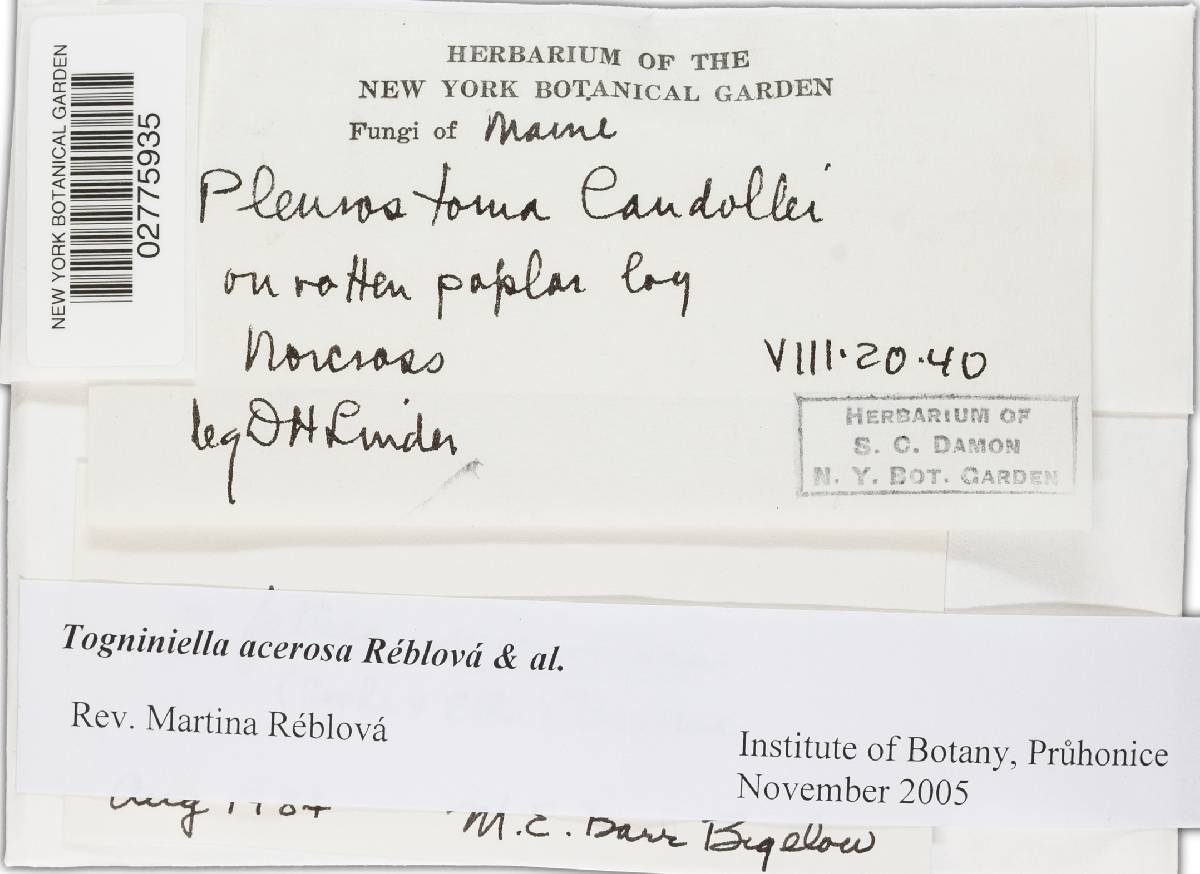 NEW YORK BOTANICAL GARDEN
02775935
HERBARIUM OF THE
NEW YORK BOTANICAL GARDEN
Fungi of Maine
Pleurostoma Candollei
on rotten poplar log
Norcross
VIII·20·40
leg D H Linder
HERBARIUM OF
S. C. DAMON
N. Y. BOT. GARDEN
Togniniella acerosa Réblová & al.
Rev. Martina Réblová
Institute of Botany, Průhonice
November 2005
Aug
M.E. Barr Bigelow